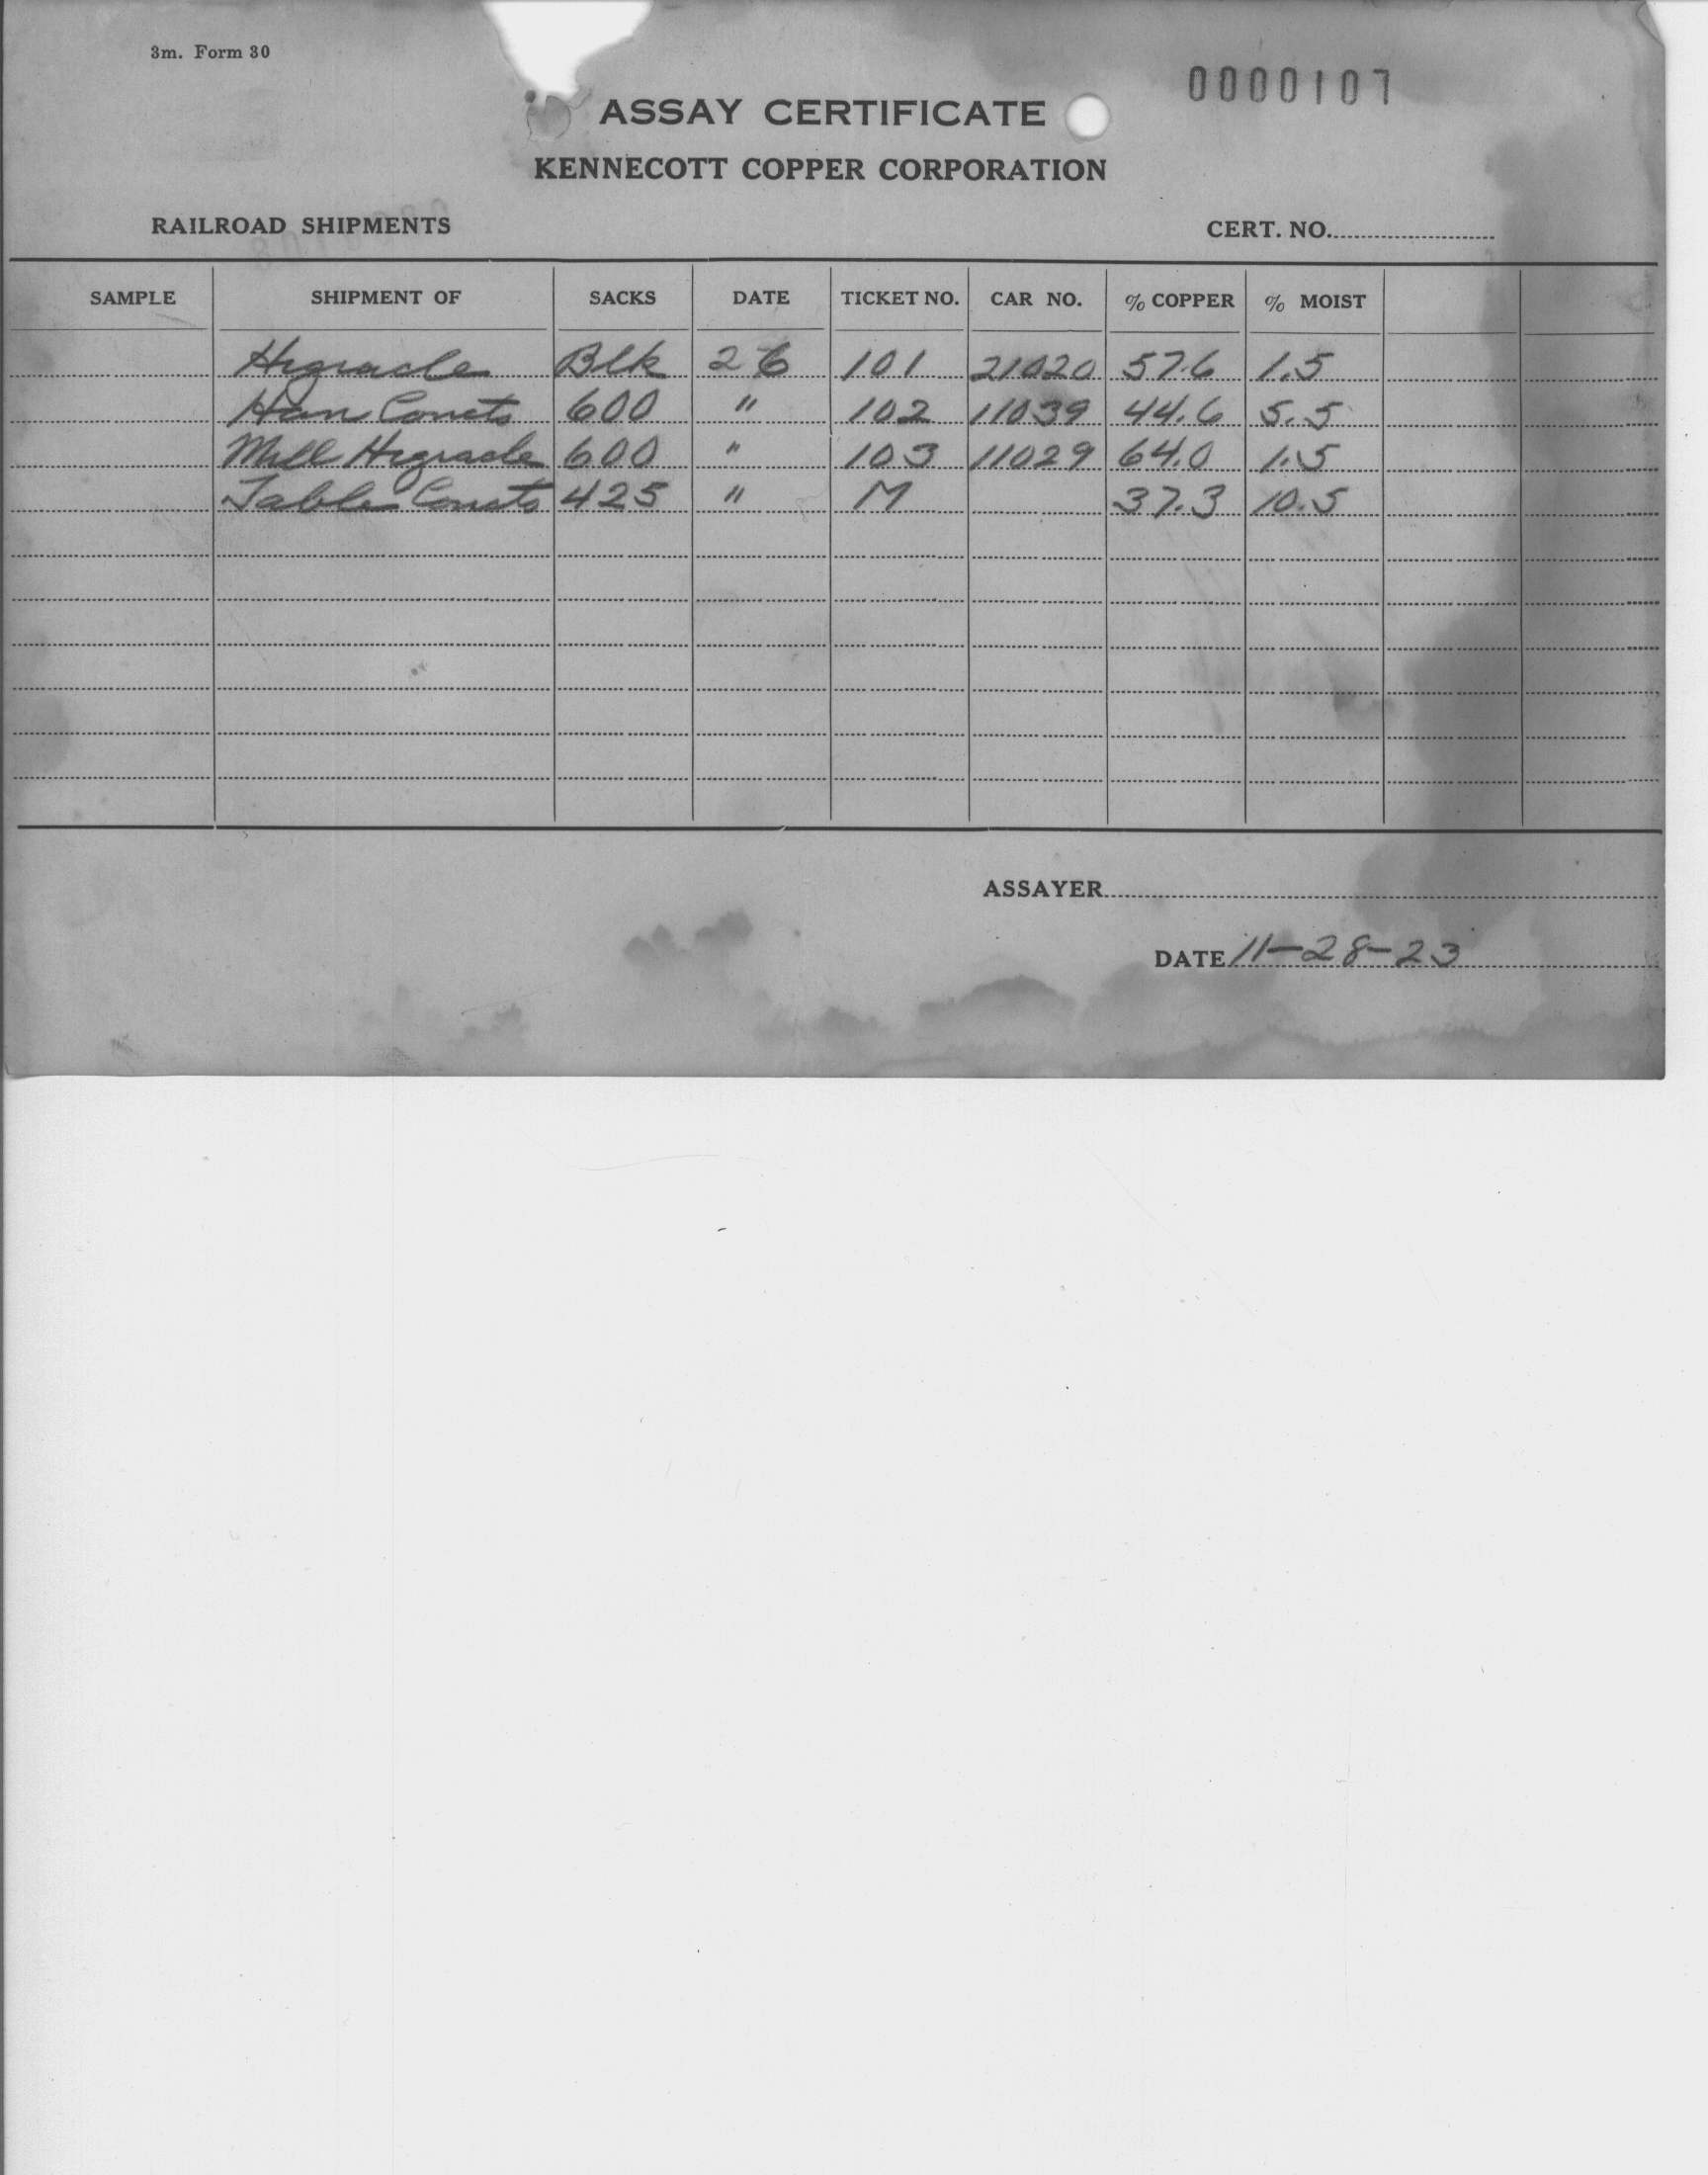 3m. Form 30
0000107
ASSAY CERTIFICATE
KENNECOTT COPPER CORPORATION
RAILROAD SHIPMENTS CERT. NO.
SAMPLE SHIPMENT OF SACKS DATE TICKET NO. CAR NO. % COPPER % MOIST
Higrade Blk 26 101 21020 57.6 1.5
Han Concts 600 " 102 11039 44.6 5.5
Mill Higrade 600 " 103 11029 64.0 1.5
Table Concts 425 " M 37.3 10.5
ASSAYER
DATE 11-28-23